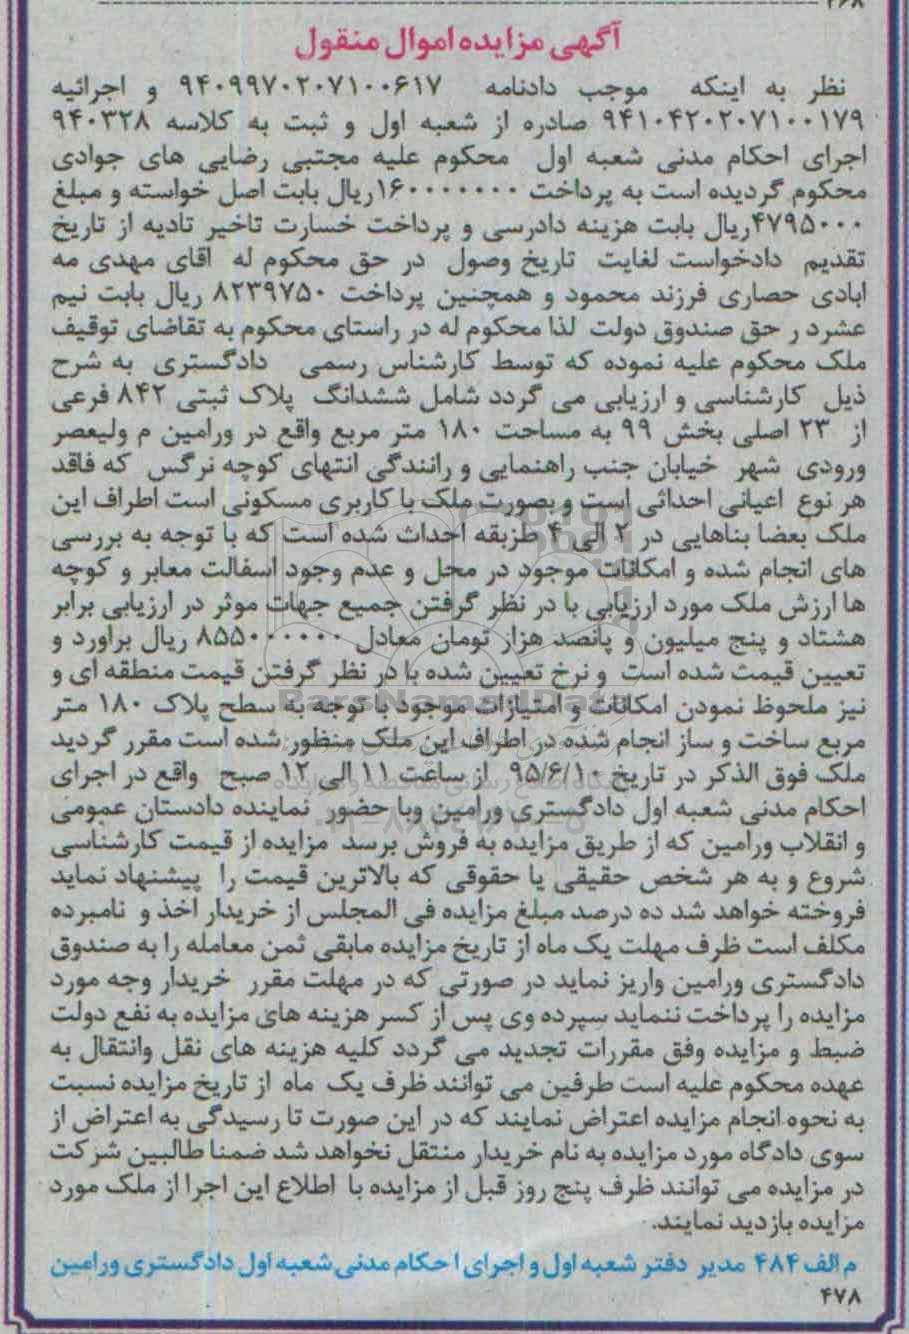 ۲۶۸
آگهی مزایده اموال منقول
نظر به اینکه موجب دادنامه ۹۴۰۹۹۷۰۲۰۷۱۰۰۶۱۷ و اجرائیه
۹۴۱۰۴۲۰۲۰۷۱۰۰۱۷۹ صادره از شعبه اول و ثبت به کلاسه ۹۴۰۳۲۸
اجرای احکام مدنی شعبه اول محکوم علیه مجتبی رضایی های جوادی
محکوم گردیده است به پرداخت ۱۶۰۰۰۰۰۰۰ریال بابت اصل خواسته و مبلغ
۴۷۹۵۰۰۰ریال بابت هزینه دادرسی و پرداخت خسارت تاخیر تادیه از تاریخ
تقدیم دادخواست لغایت تاریخ وصول در حق محکوم له اقای مهدی مه
ابادی حصاری فرزند محمود و همچنین پرداخت ۸۲۳۹۷۵۰ ریال بابت نیم
عشرد ر حق صندوق دولت لذا محکوم له در راستای محکوم به تقاضای توقیف
ملک محکوم علیه نموده که توسط کارشناس رسمی دادگستری به شرح
ذیل کارشناسی و ارزیابی می گردد شامل ششدانگ پلاک ثبتی ۸۴۲ فرعی
از ۲۳ اصلی بخش ۹۹ به مساحت ۱۸۰ متر مربع واقع در ورامین م ولیعصر
ورودی شهر خیابان جنب راهنمایی و رانندگی انتهای کوچه نرگس که فاقد
هر نوع اعیانی احداثی است و بصورت ملک با کاربری مسکونی است اطراف این
ملک بعضا بناهایی در ۲ الی ۴ طزبقه احداث شده است که با توجه به بررسی
های انجام شده و امکانات موجود در محل و عدم وجود اسفالت معابر و کوچه
ها ارزش ملک مورد ارزیابی با در نظر گرفتن جمیع جهات موثر در ارزیابی برابر
هشتاد و پنج میلیون و پانصد هزار تومان معادل ۸۵۵۰۰۰۰۰۰ ریال براورد و
تعیین قیمت شده است و نرخ تعیین شده با در نظر گرفتن قیمت منطقه ای و
نیز ملحوظ نمودن امکانات و امتیازات موجود با توجه به سطح پلاک ۱۸۰ متر
مربع ساخت و ساز انجام شده در اطراف این ملک منظور شده است مقرر گردید
ملک فوق الذکر در تاریخ ۹۵/۶/۱۰ از ساعت ۱۱ الی ۱۲ صبح واقع در اجرای
احکام مدنی شعبه اول دادگستری ورامین وبا حضور نماینده دادستان عمومی
و انقلاب ورامین که از طریق مزایده به فروش برسد مزایده از قیمت کارشناسی
شروع و به هر شخص حقیقی یا حقوقی که بالاترین قیمت را پیشنهاد نماید
فروخته خواهد شد ده درصد مبلغ مزایده فی المجلس از خریدار اخذ و نامبرده
مکلف است ظرف مهلت یک ماه از تاریخ مزایده مابقی ثمن معامله را به صندوق
دادگستری ورامین واریز نماید در صورتی که در مهلت مقرر خریدار وجه مورد
مزایده را پرداخت ننماید سپرده وی پس از کسر هزینه های مزایده به نفع دولت
ضبط و مزایده وفق مقررات تجدید می گردد کلیه هزینه های نقل وانتقال به
عهده محکوم علیه است طرفین می توانند ظرف یک ماه از تاریخ مزایده نسبت
به نحوه انجام مزایده اعتراض نمایند که در این صورت تا رسیدگی به اعتراض از
سوی دادگاه مورد مزایده به نام خریدار منتقل نخواهد شد ضمنا طالبین شرکت
در مزایده می توانند ظرف پنج روز قبل از مزایده با اطلاع این اجرا از ملک مورد
مزایده بازدید نمایند.
م الف ۴۸۴ مدیر دفتر شعبه اول و اجرای ا حکام مدنی شعبه اول دادگستری ورامین
۴۷۸
ParsNamadData